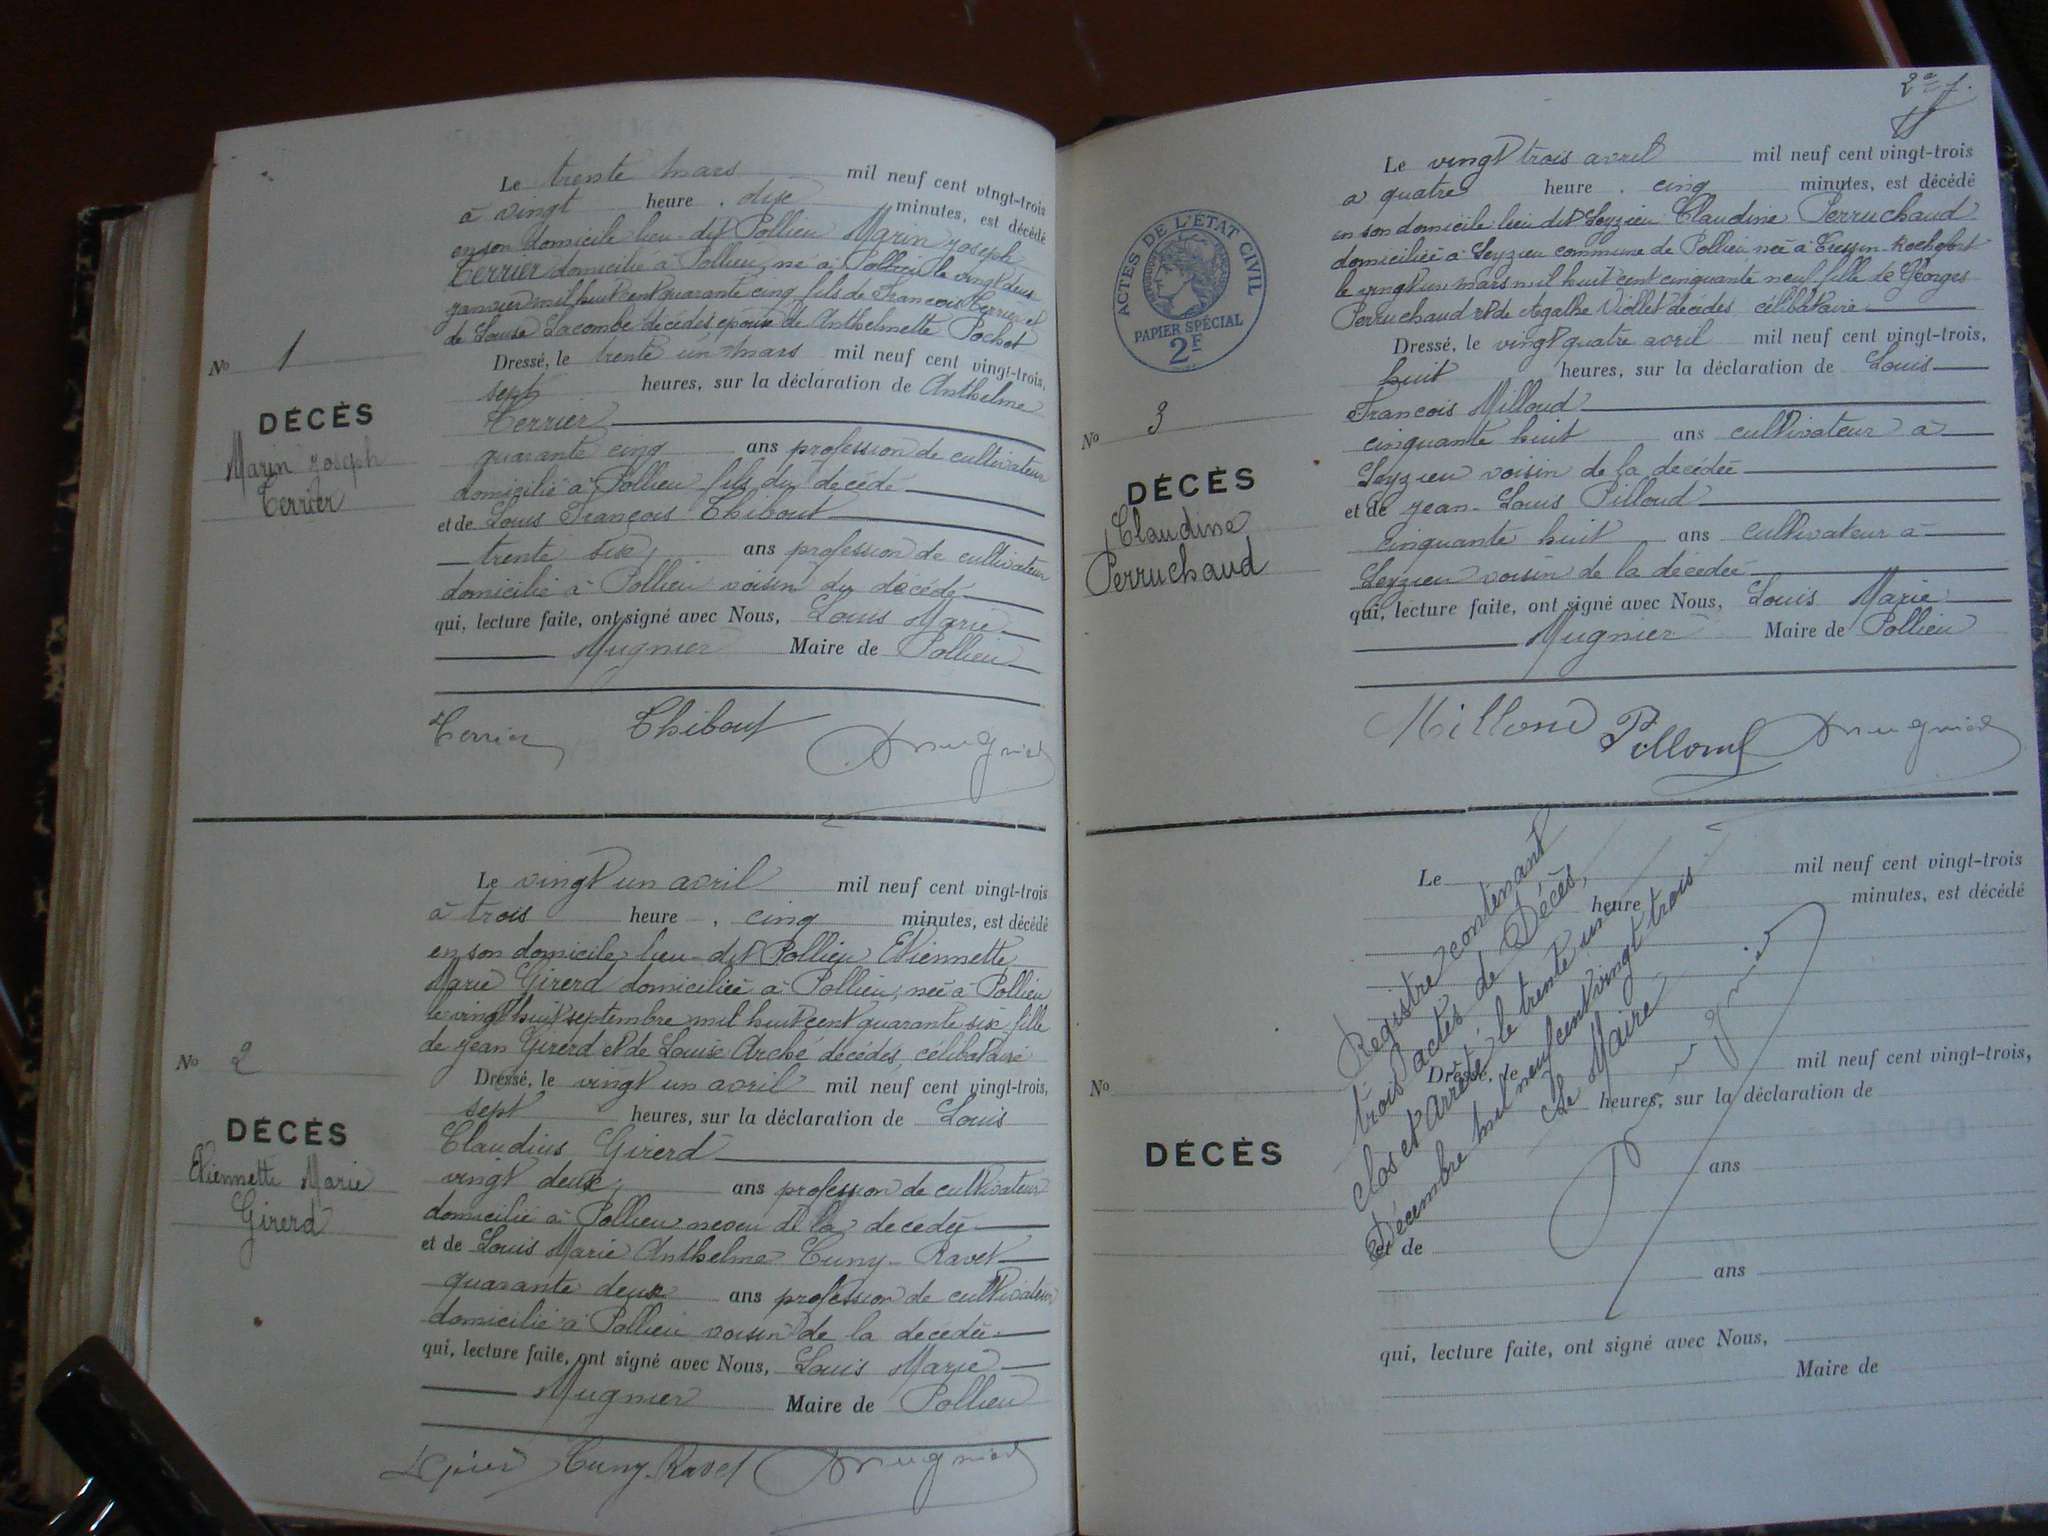 Le trente mars mil neuf cent vingt-trois
à vingt heure, dix minutes, est décédé
en son domicile lieu-dit Pollieu Marin Joseph
Terrier domicilié à Pollieu, né à Pollieu le vingt deux
janvier mil huit cent quarante cinq fils de François Terrier et
de Louise Lacombe décédés époux de Anthelmette Pochet
Dressé, le trente un mars mil neuf cent vingt-trois,
sept heures, sur la déclaration de Anthelme
Terrier
quarante cinq ans profession de cultivateur
domicilié à Pollieu fils du décédé
et de Louis François Thibout
trente six ans profession de cultivateur
domicilié à Pollieu voisin du décédé
qui, lecture faite, ont signé avec Nous, Louis Marie
Mugnier Maire de Pollieu
Terrier Thibout Mugnier
No 1
DÉCÈS
Marin Joseph
Terrier
Le vingt un avril mil neuf cent vingt-trois
à trois heure, cinq minutes, est décédé
en son domicile lieu-dit Pollieu Etiennette
Marie Girerd domiciliée à Pollieu, née à Pollieu
le vingt huit septembre mil huit cent quarante six fille
de Jean Girerd et de Louise Arché décédés, célibataire
Dressé, le vingt un avril mil neuf cent vingt-trois,
sept heures, sur la déclaration de Louis
Claudius Girerd
vingt deux ans profession de cultivateur
domicilié à Pollieu neveu de la décédée
et de Louis Marie Anthelme Cuny-Ravet
quarante deux ans profession de cultivateur
domicilié à Pollieu voisin de la décédée
qui, lecture faite, ont signé avec Nous, Louis Marie
Mugnier Maire de Pollieu
Cuny-Ravet Mugnier
No 2
DÉCÈS
Etiennette Marie
Girerd
Le vingt trois avril mil neuf cent vingt-trois
a quatre heure, cinq minutes, est décédé
en son domicile lieu dit Leyzieu Claudine Perruchaud
domiciliée à Leyzieu commune de Pollieu, née à Cressin-Rochefort
le vingt un mars mil huit cent cinquante neuf fille de Georges
Perruchaud et de Agathe Viollet décédés célibataire
Dressé, le vingt quatre avril mil neuf cent vingt-trois,
huit heures, sur la déclaration de Louis
François Milloud
cinquante huit ans cultivateur à
Leyzieu voisin de la décédée
et de Jean-Louis Pilloud
cinquante huit ans cultivateur à
Leyzieu voisin de la décédée
qui, lecture faite, ont signé avec Nous, Louis Marie
Mugnier Maire de Pollieu
Milloud Pilloud Mugnier
ACTES DE L'ÉTAT CIVIL
PAPIER SPÉCIAL
2F
No 3
DÉCÈS
Claudine
Perruchaud
Le mil neuf cent vingt-trois
heure minutes, est décédé
Dressé, le mil neuf cent vingt-trois,
heures, sur la déclaration de
ans
et de
ans
qui, lecture faite, ont signé avec Nous,
Maire de
No
DÉCÈS
Registre contenant
trois actes de Décès,
clos et arrêté le trente un
Décembre mil neuf cent vingt trois
Le Maire
Mugnier